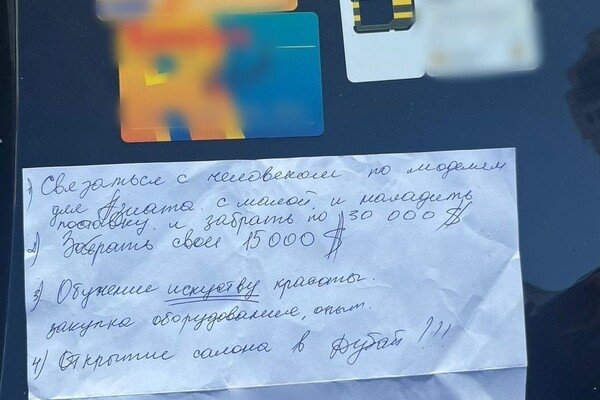 1) Связаться с человеком по моделям
для с малой и наладить
поставку и забрать по 30 000 $
2) Забрать свои 15 000 $
3) Обучение искуству красоты.
закупка оборудования, опыт.
4) Открытие салона в Дубай !!!